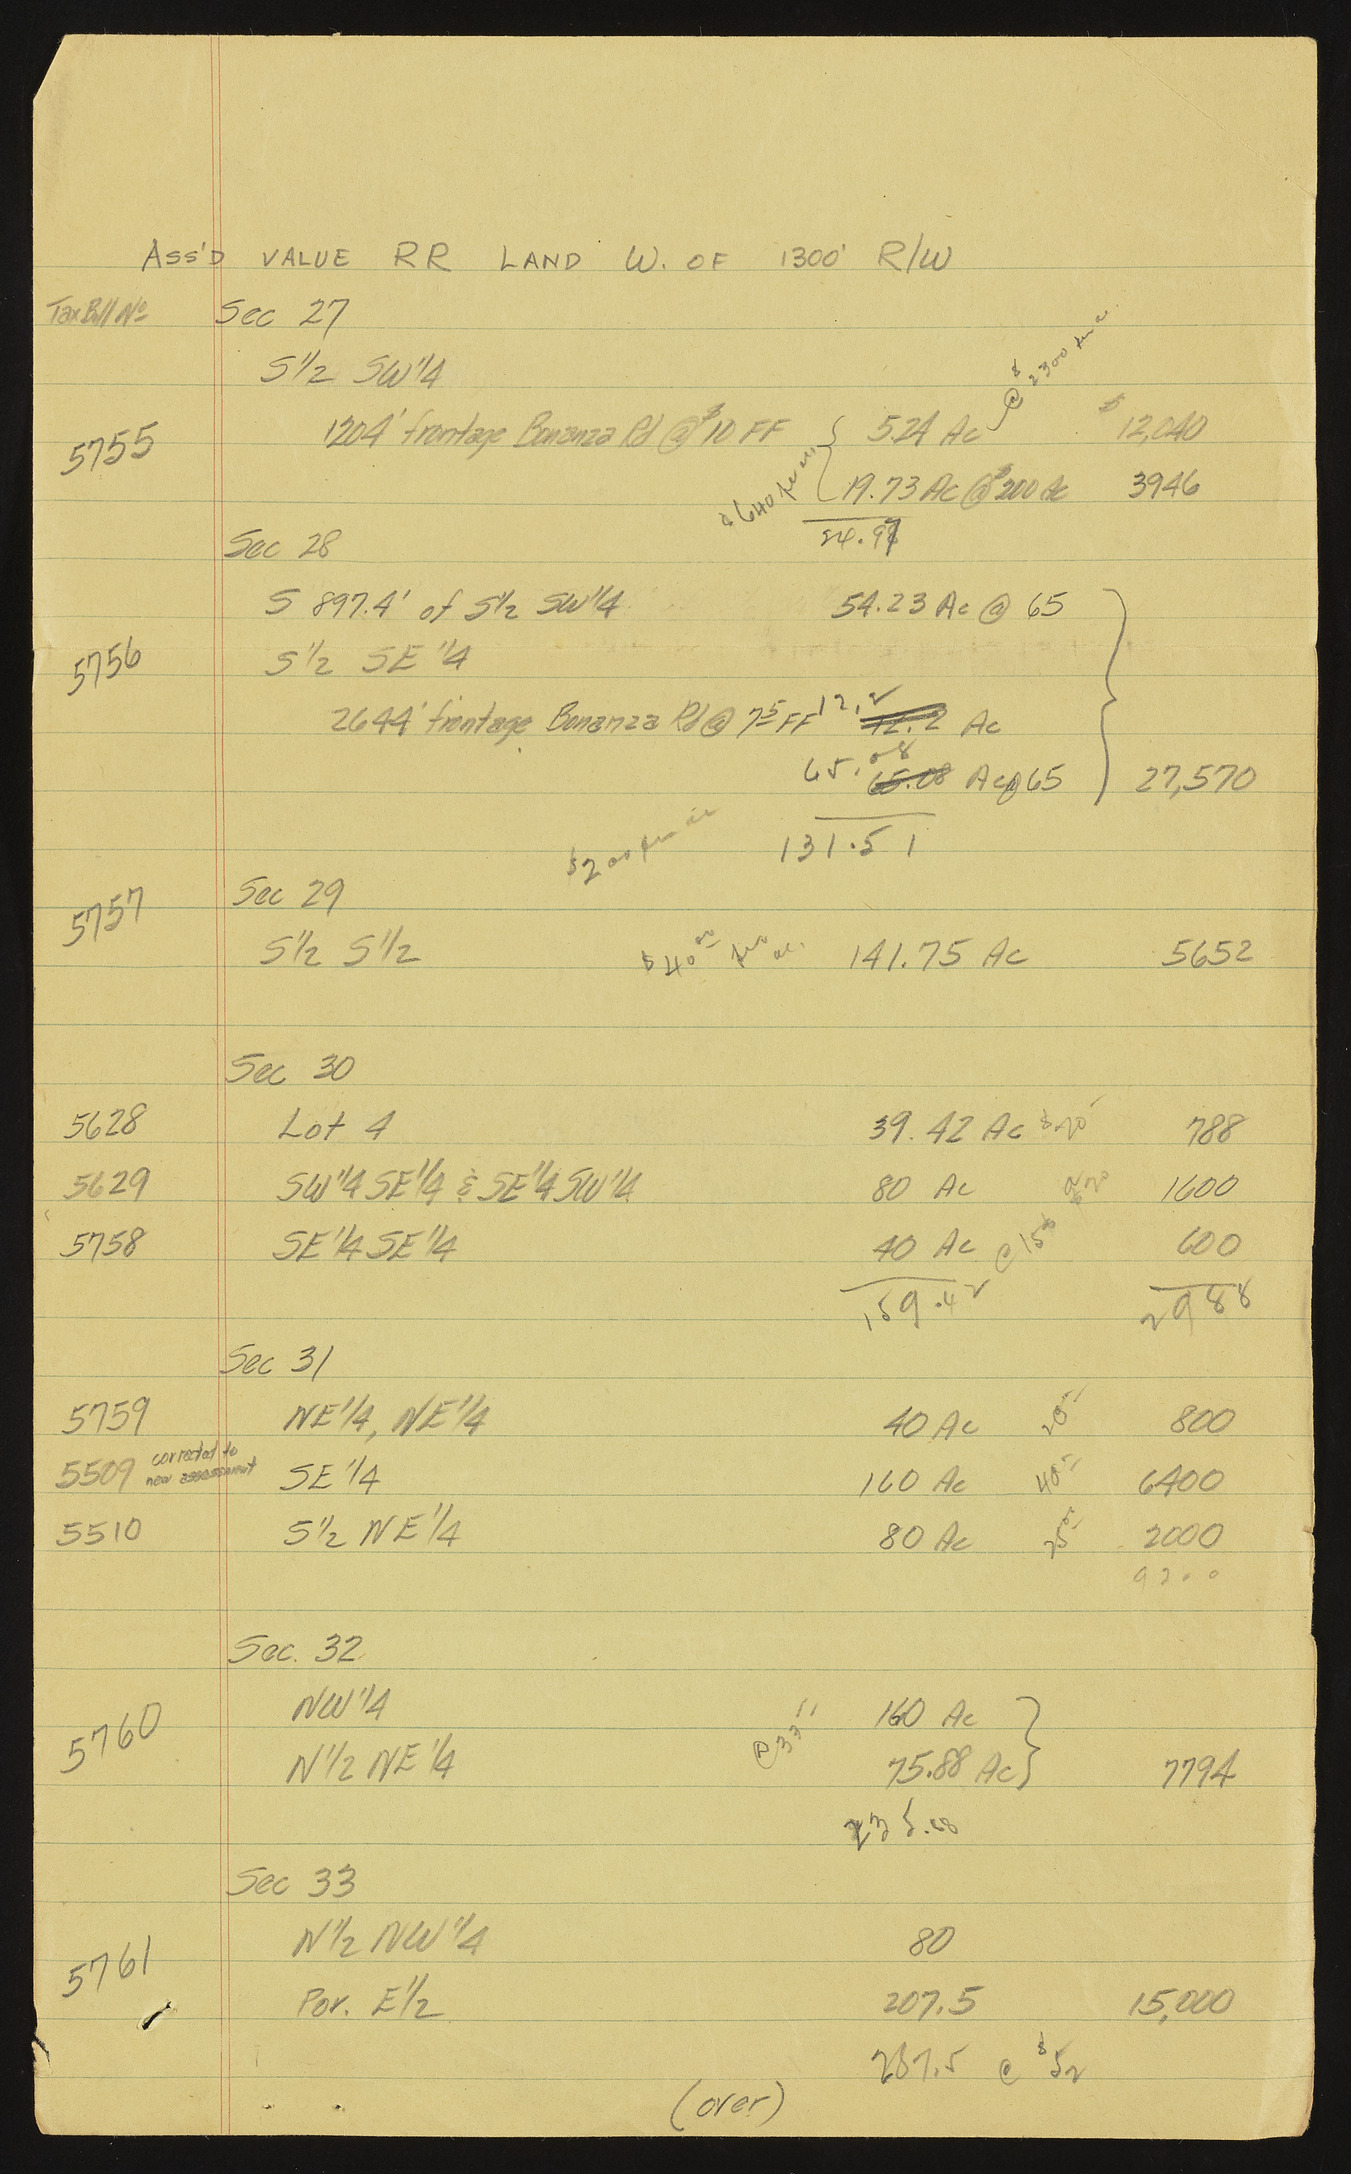 ASS'D VALUE RR LAND W. OF 1300' R/W
Tax Bill No Sec 27
S 1/2 SW 1/4
@ $2300 per ac.
5755 1204' frontage Bonanza Rd @ $10 FF 5.24 Ac $12,040
$640 per ac. 19.73 Ac @ $200 Ac 3946
24.97
Sec 28
S 897.4' of S 1/2 SW 1/4 54.23 Ac @ 65
5756 S 1/2 SE 1/4
2644' frontage Bonanza Rd @ 7.5 FF 12.2 12.2 Ac
65.08 65.08 Ac @ 65 27,570
$200 per ac 131.51
5757 Sec 29
S 1/2 S 1/2 $40.00 per ac. 141.75 Ac 5652
Sec 30
5628 Lot 4 39.42 Ac $20 788
5629 SW 1/4 SE 1/4 & SE 1/4 SW 1/4 80 Ac @ $20 1600
5758 SE 1/4 SE 1/4 40 Ac @ 15 600
159.42 2988
Sec 31
5759 NE 1/4, NE 1/4 40 Ac 20 800
5509 corrected to new assessment SE 1/4 160 Ac 40 6400
5510 S 1/2 NE 1/4 80 Ac 25 2000
9200
Sec. 32
NW 1/4 160 Ac
5760 N 1/2 NE 1/4 @ 33 75.88 Ac 7794
235.88
Sec 33
N 1/2 NW 1/4 80
5761 Por. E 1/2 207.5 15,000
287.5 @ $52
(over)